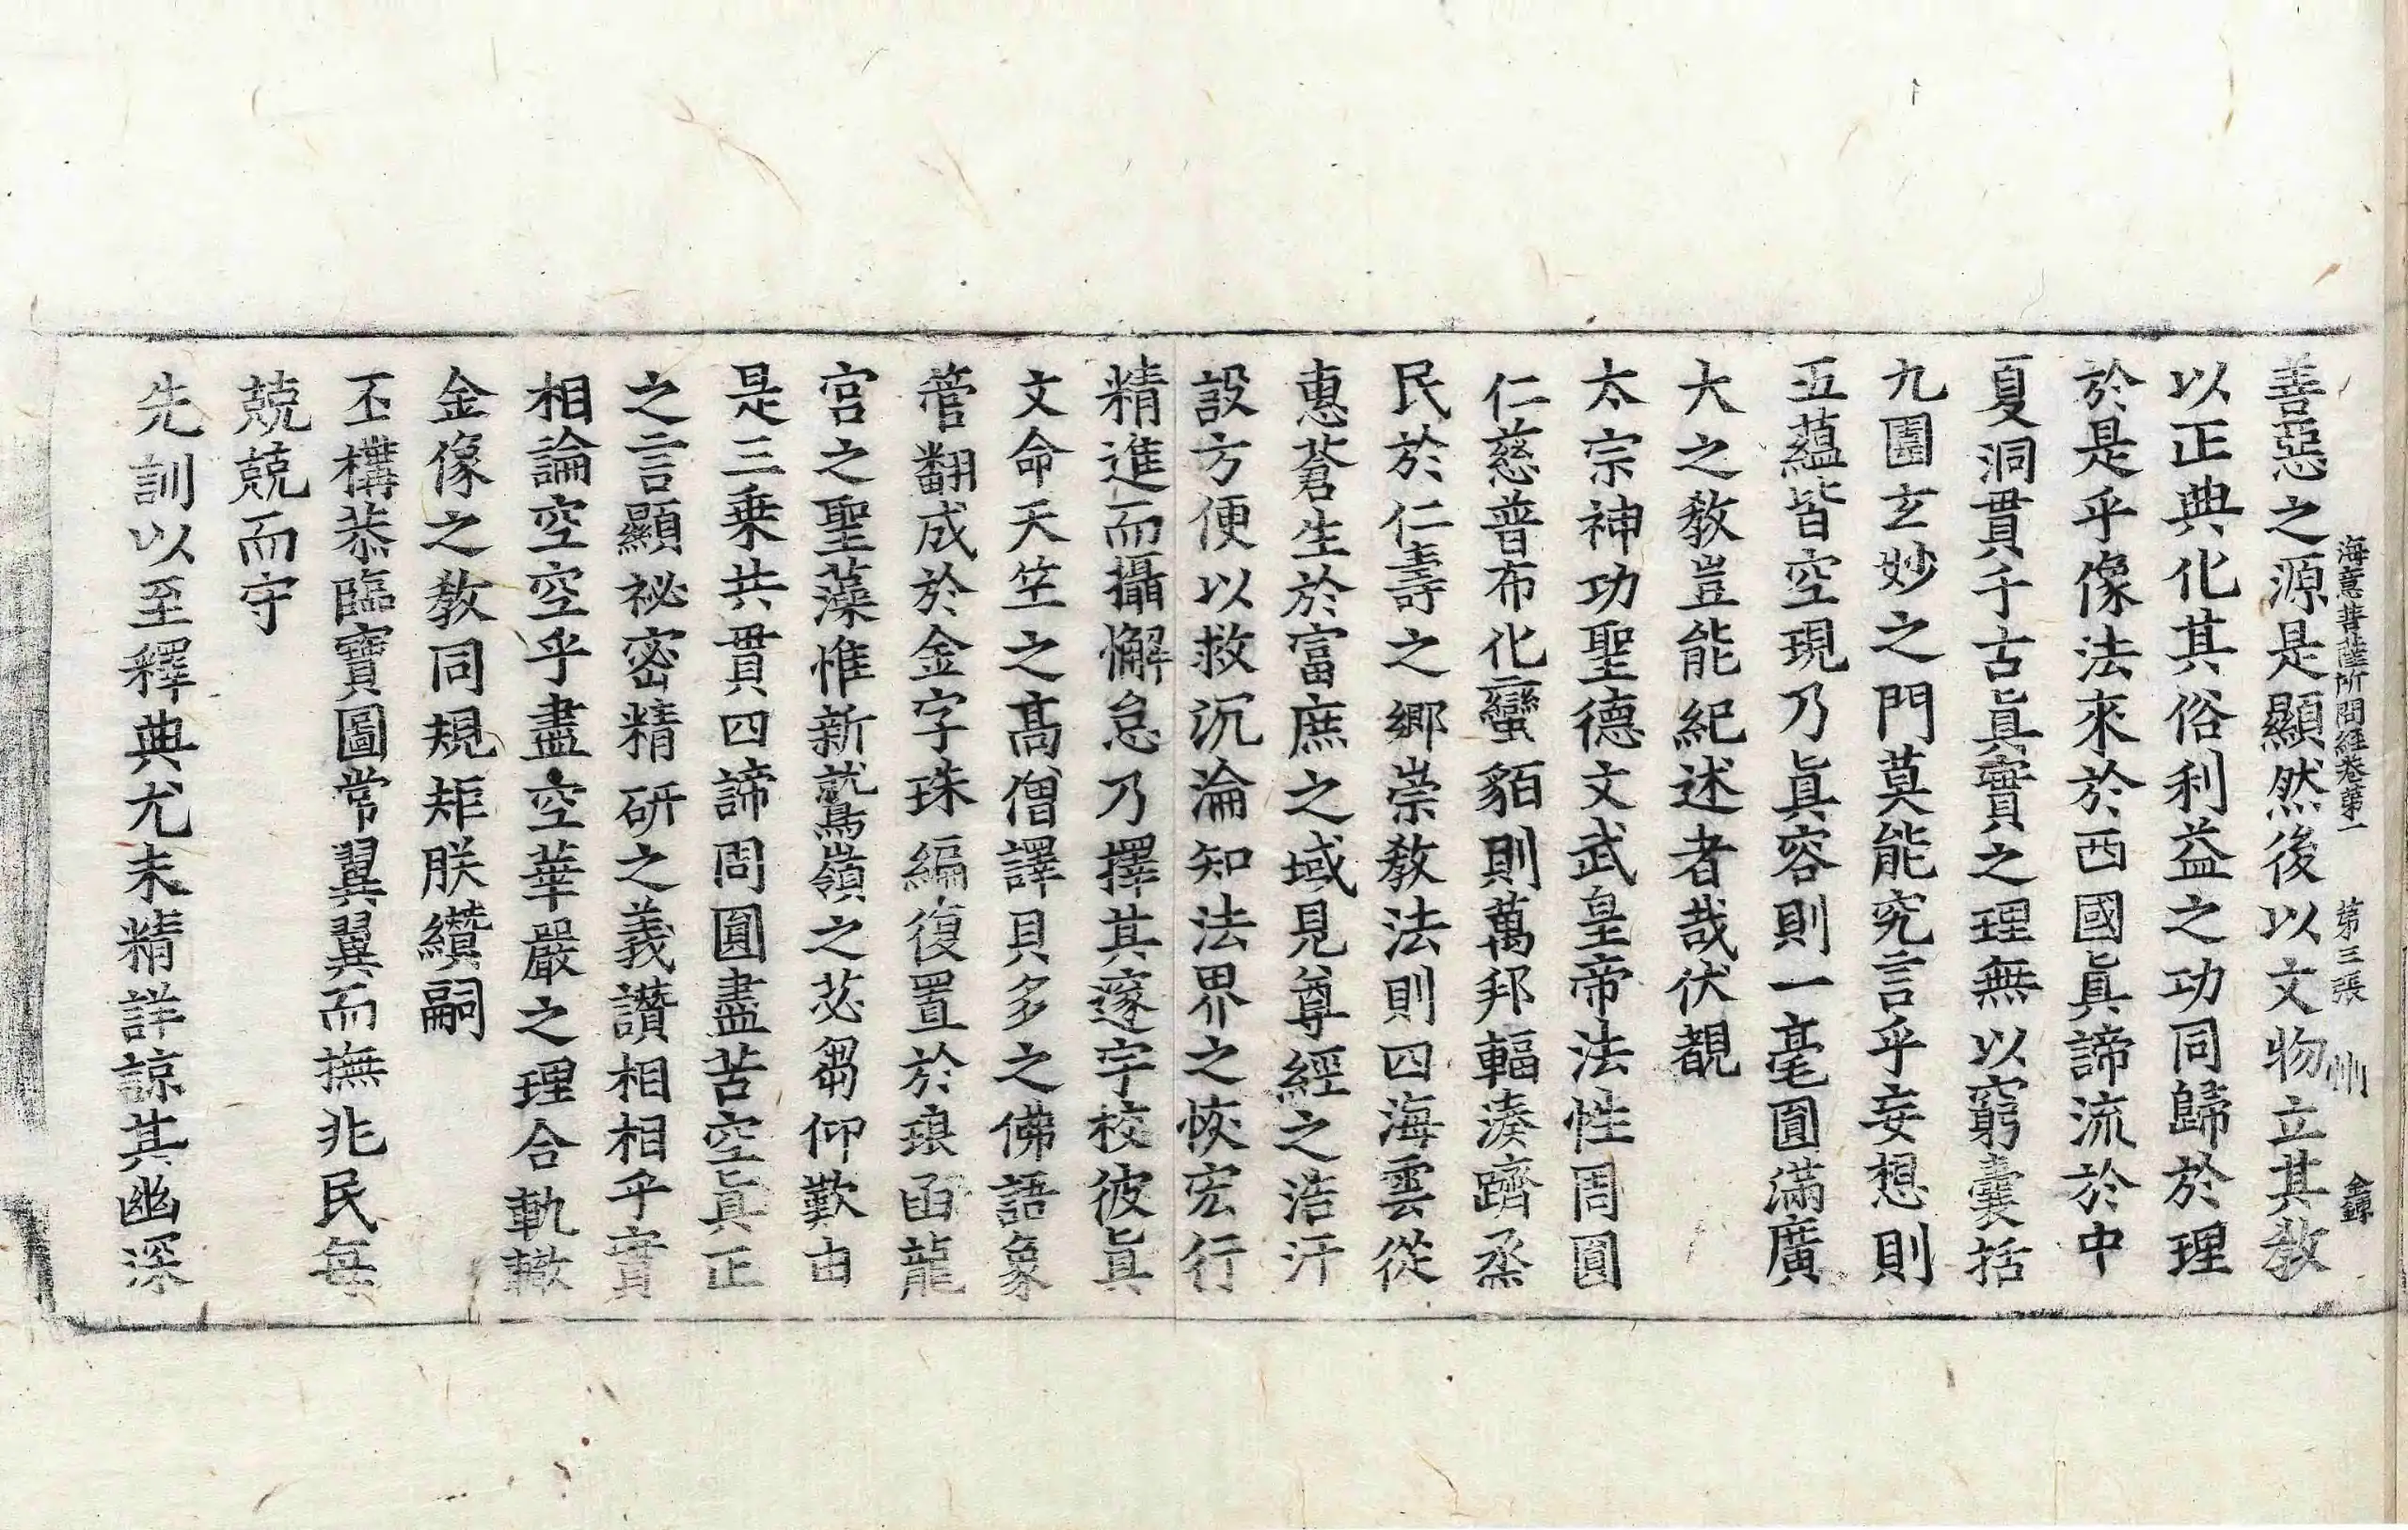 海意菩薩所問經卷第一 第三張 州 金鐏
善惡之源是顯然後以文物立其敎
以正典化其俗利益之功同歸於理
於是乎像法來於西國眞諦流於中
夏洞貫千古眞實之理無以窮囊括
九圍玄妙之門莫能究言乎妄想則
五蘊皆空現乃眞容則一毫圓滿廣
大之敎豈能紀述者哉伏覩
太宗神功聖德文武皇帝法性周圓
仁慈普布化蠻貊則萬邦輻湊躋烝
民於仁壽之鄉崇敎法則四海雲從
惠蒼生於富庶之域見尊經之浩汗
設方便以救沉淪知法界之恢宏行
精進而攝懈怠乃擇其邃宇校彼眞
文命天竺之高僧譯貝多之佛語象
菅翻成於金字珠編復置於琅函龍
宮之聖藻惟新鷲嶺之苾蒭仰歎由
是三乘共貫四諦同圓盡苦空眞正
之言顯祕密精硏之義讚相相乎實
相論空空乎盡空華嚴之理合軌轍
金像之敎同規矩朕纘嗣
丕構恭臨寶圖常翼翼而撫兆民每
兢兢而守
先訓以至釋典尤未精詳諒其幽深